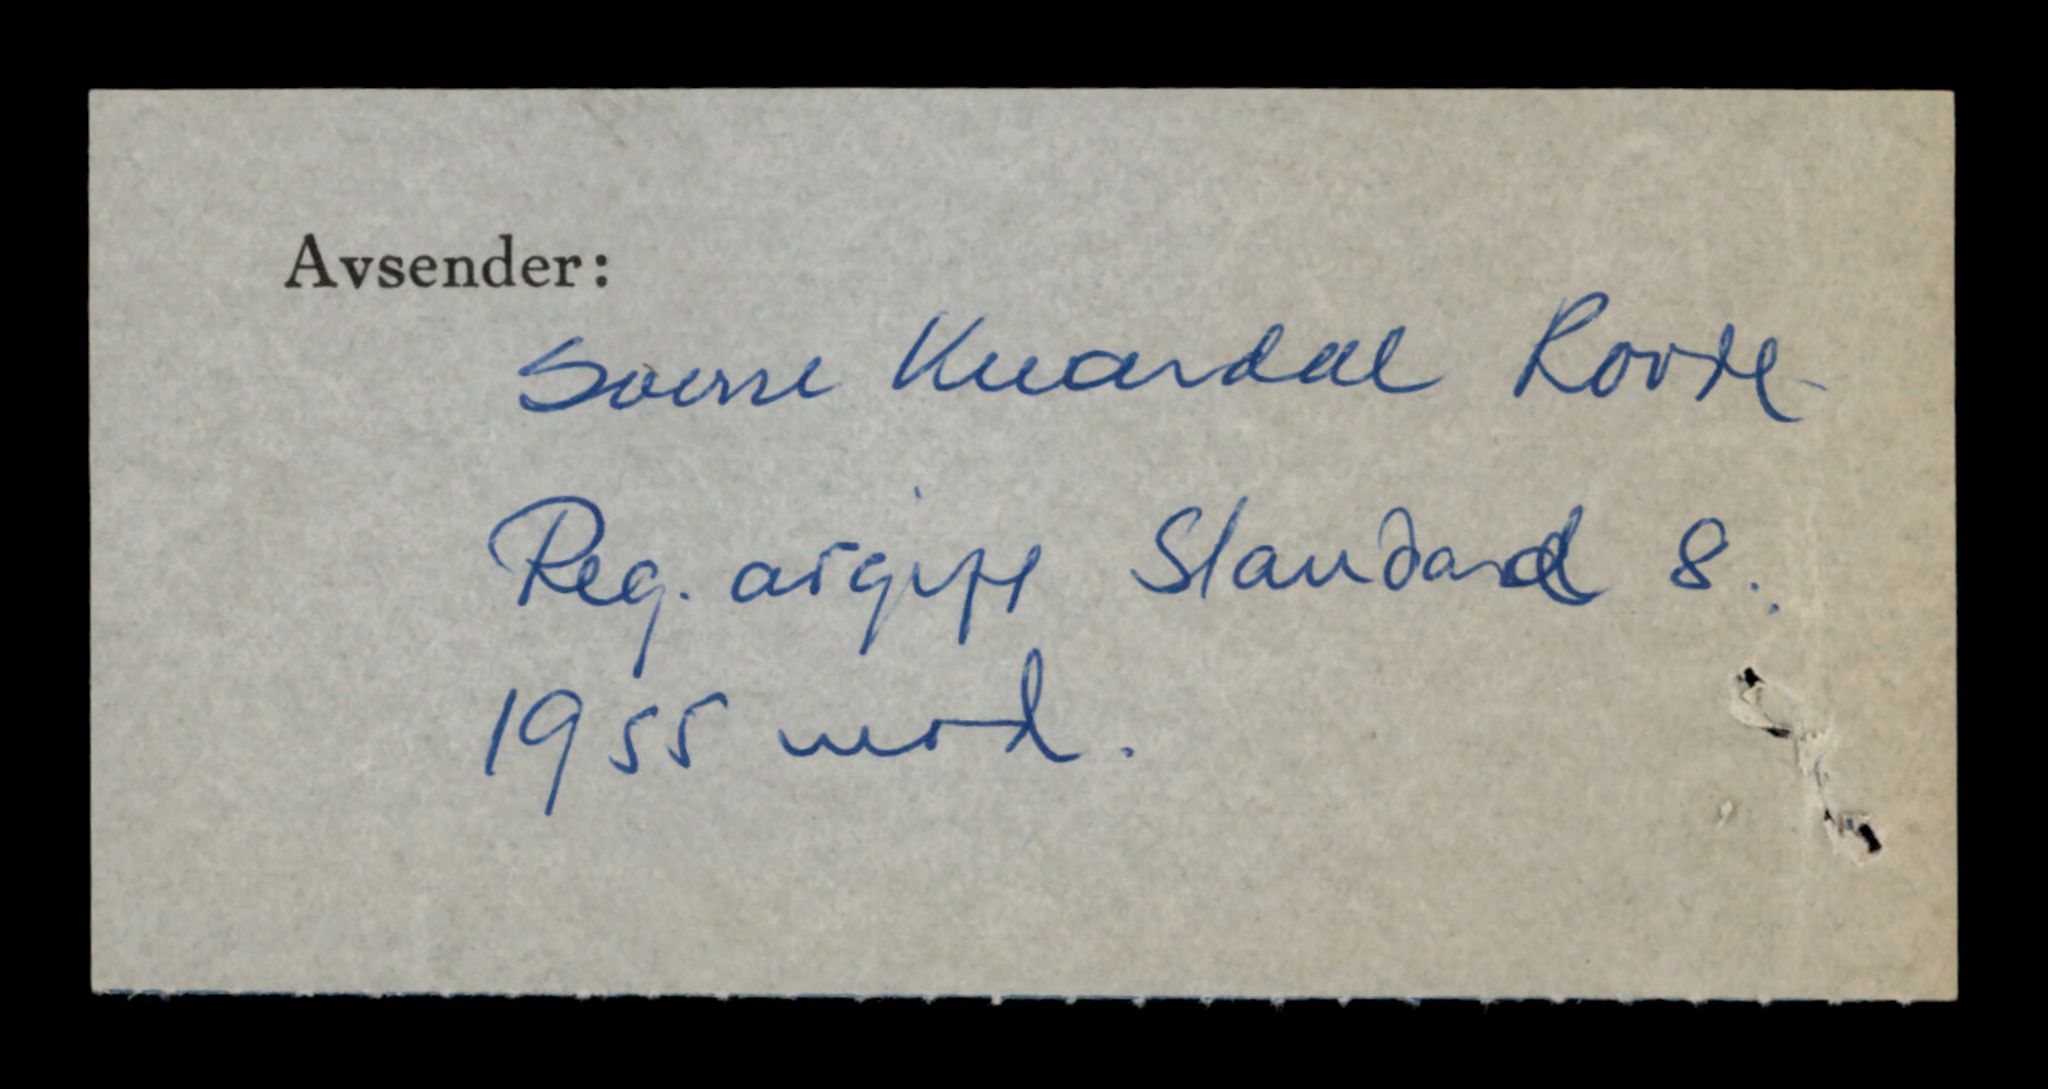 Avsender:
Sverre Kvandal Rovde
Reg. avgift Standard 8.
1955 mod.